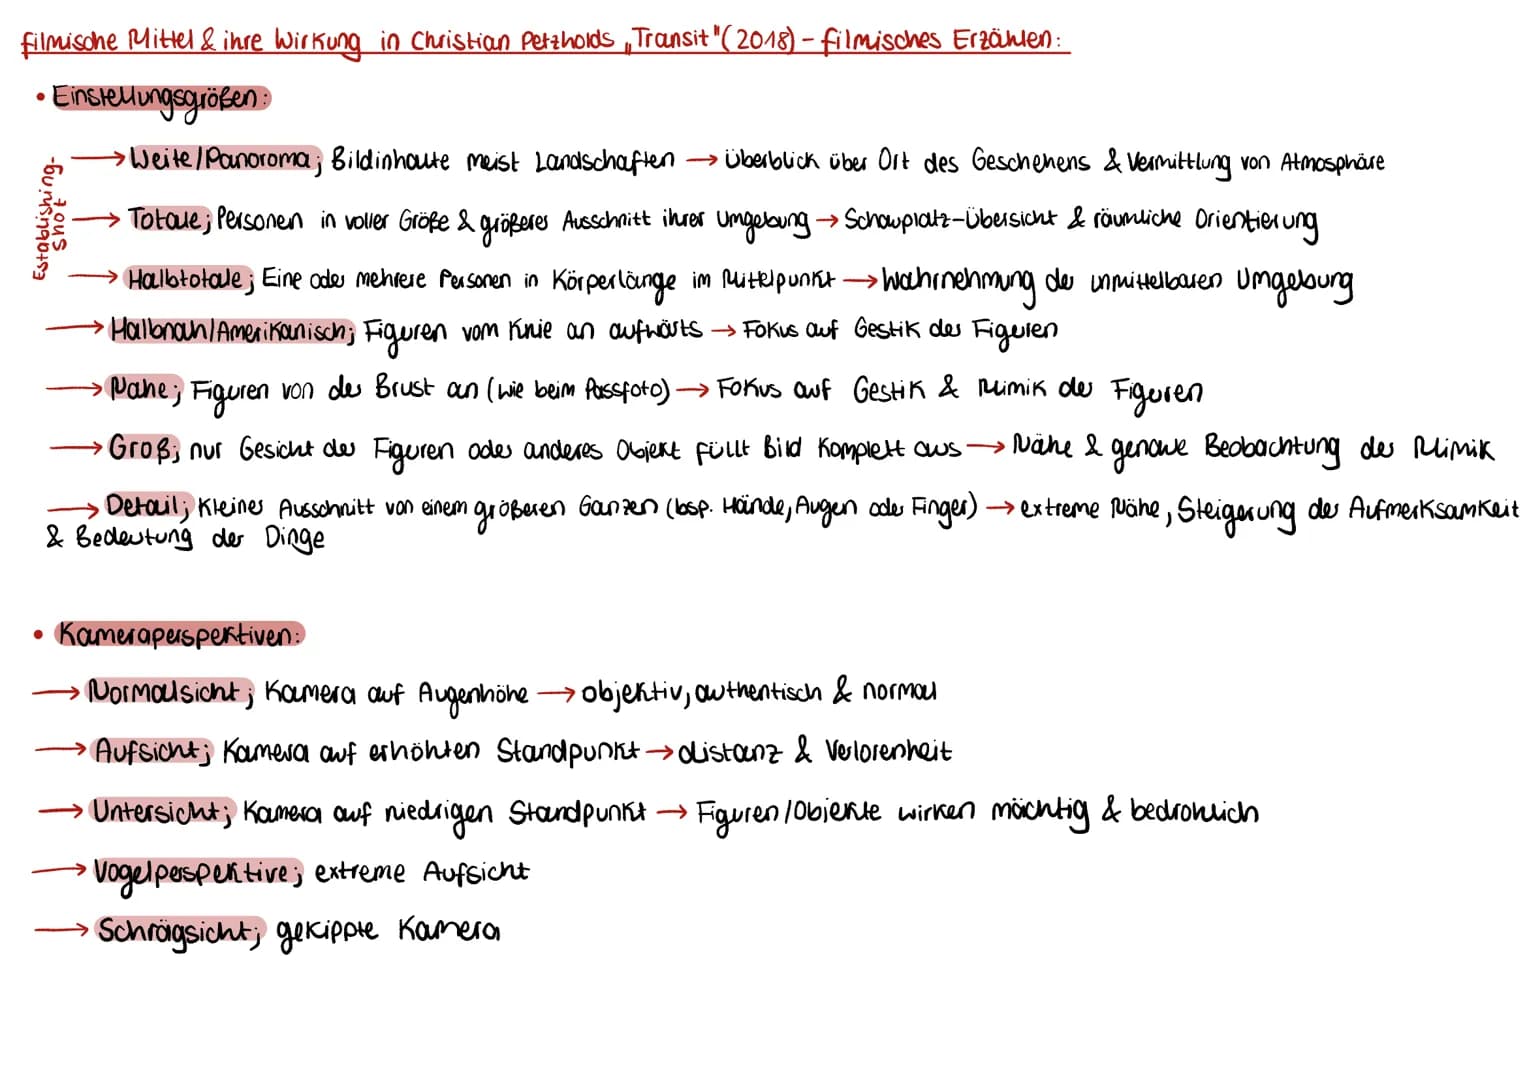 filmische Mittel & ihre Wirkung in Christian Petzholds „Transit" (2018) - filmisches Erzählen:
• Einstellungsgrößen:
Establishing-
Shot
→ Weite/Panorama; Bildinhalte meist Landschaften → Überblick über Ort des Geschehens & Vermittlung von Atmosphäre
→ Totale; Personen in voller Größe & größerer Ausschnitt ihrer Umgebung → Schauplatz-Übersicht & räumliche Orientierung
→ Halbtotale; Eine oder mehrere Personen in Körperlänge im Mittelpunkt → Wahrnehmung der unmittelbaren Umgebung
→ Halbnah/Amerikanisch; Figuren vom Knie an aufwärts → Fokus auf Gestik der Figuren
→ Nahe; Figuren von der Brust an (wie beim Passfoto) → Fokus auf Gestik & Mimik der Figuren
→ Groß; nur Gesicht der Figuren oder anderes Objekt füllt Bild komplett aus → Nähe & genaue Beobachtung der Mimik
→ Detail; kleiner Ausschnitt von einem größeren Ganzen (bsp. Hände, Augen oder Finger) → extreme Nähe, Steigerung der Aufmerksamkeit
& Bedeutung der Dinge
• Kameraperspektiven:
→ Normalsicht; Kamera auf Augenhöhe → objektiv, authentisch & normal
→ Aufsicht; Kamera auf erhöhten Standpunkt → distanz & Verlorenheit
→ Untersicht; Kamera auf niedrigen Standpunkt → Figuren/Objekte wirken mächtig & bedrohlich
→ Vogelperspektive; extreme Aufsicht
→ Schrägsicht; gekippte Kamera